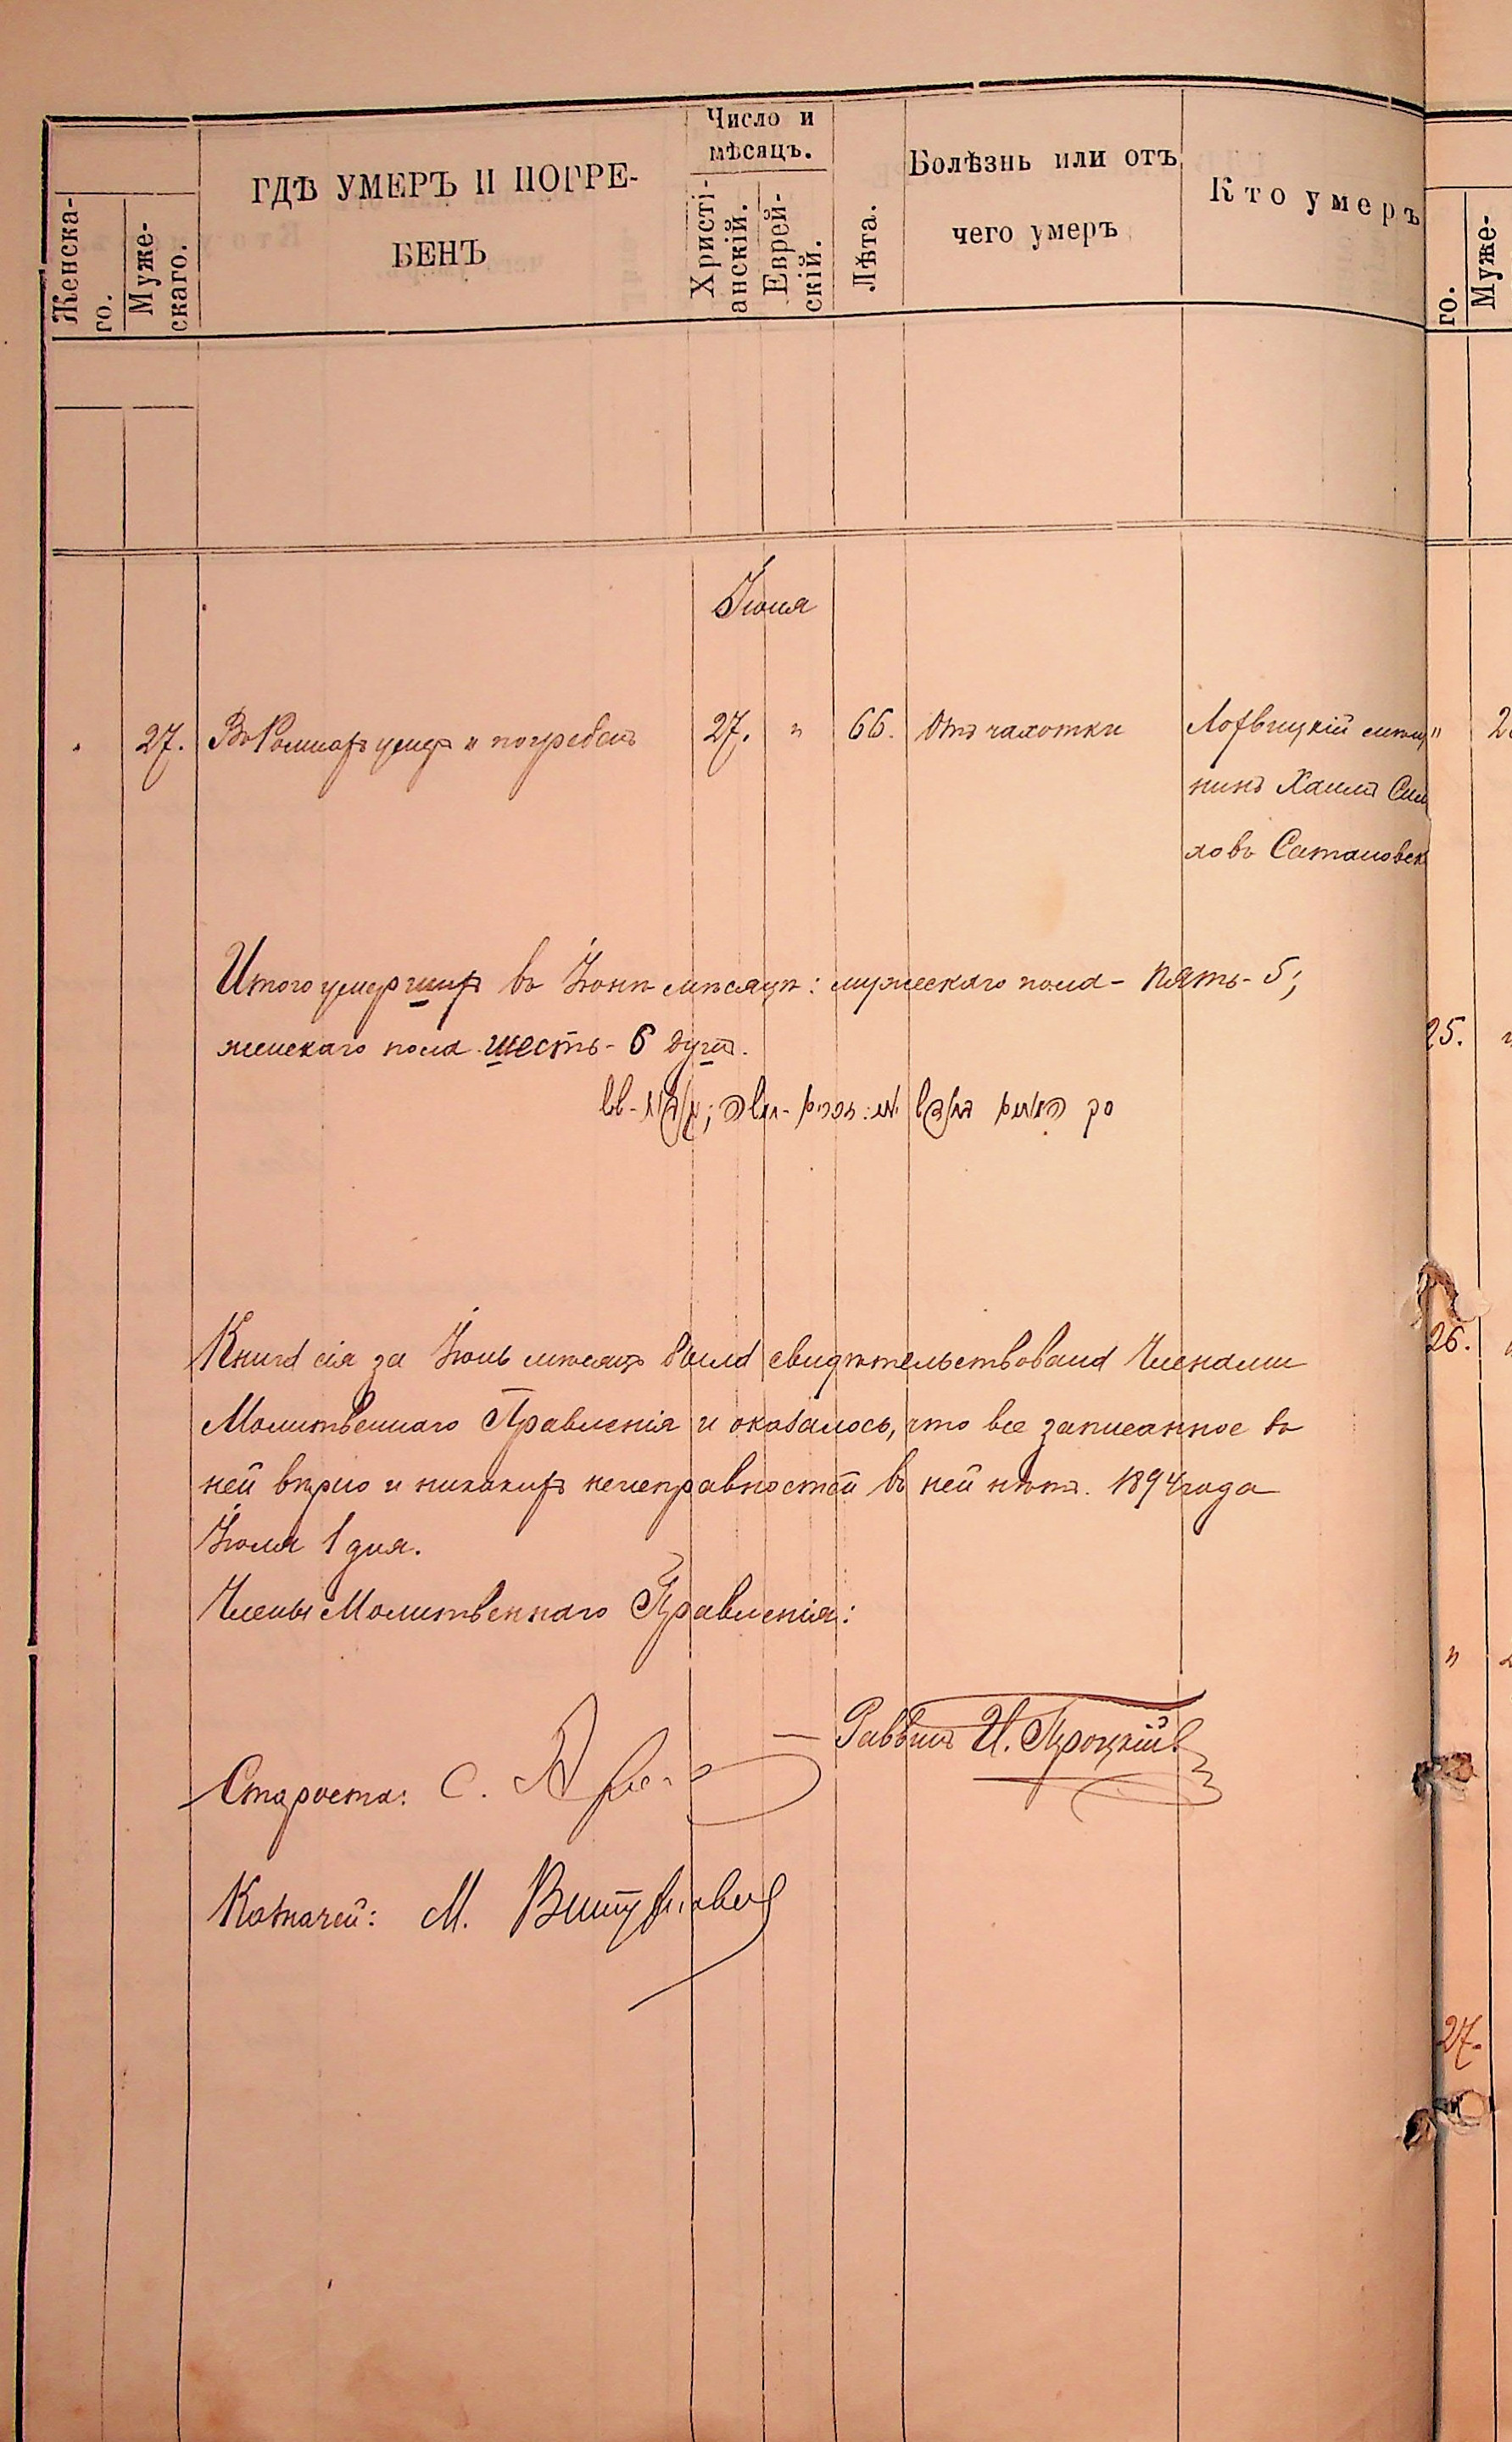 Число и
мѣсяцъ.
ГДѢ УМЕРЪ И ПОГРЕ-
БЕНЪ
Болѣзнь или отъ
чего умеръ
Кто умеръ
Женска-
го.
Муже-
скаго.
Христі-
анскій.
Еврей-
скій.
Лѣта.
го.
Муже-
Іюня
27. Въ Ромнахъ умеръ и погребенъ 27. " 66. Отъ чахотки Лохвицкій мѣща
нинъ Хаимъ Сим
ховъ Сатановск
Итого умершихъ въ Іюнѣ мѣсяцѣ: мужескаго пола - пять - 5;
женскаго пола шесть - 6 душъ.
Книга сія за Іюнь мѣсяцъ была свидѣтельствована Членами
Молитвеннаго Правленія и оказалось, что все записанное въ
ней вѣрно и никакихъ неисправностей въ ней нѣтъ. 1894 года
Іюля 1 дня.
Члены Молитвеннаго Правленія:
Раввинъ И. Троцкій
Староста: С.
Казначей: М.
25.
26.
"
27.